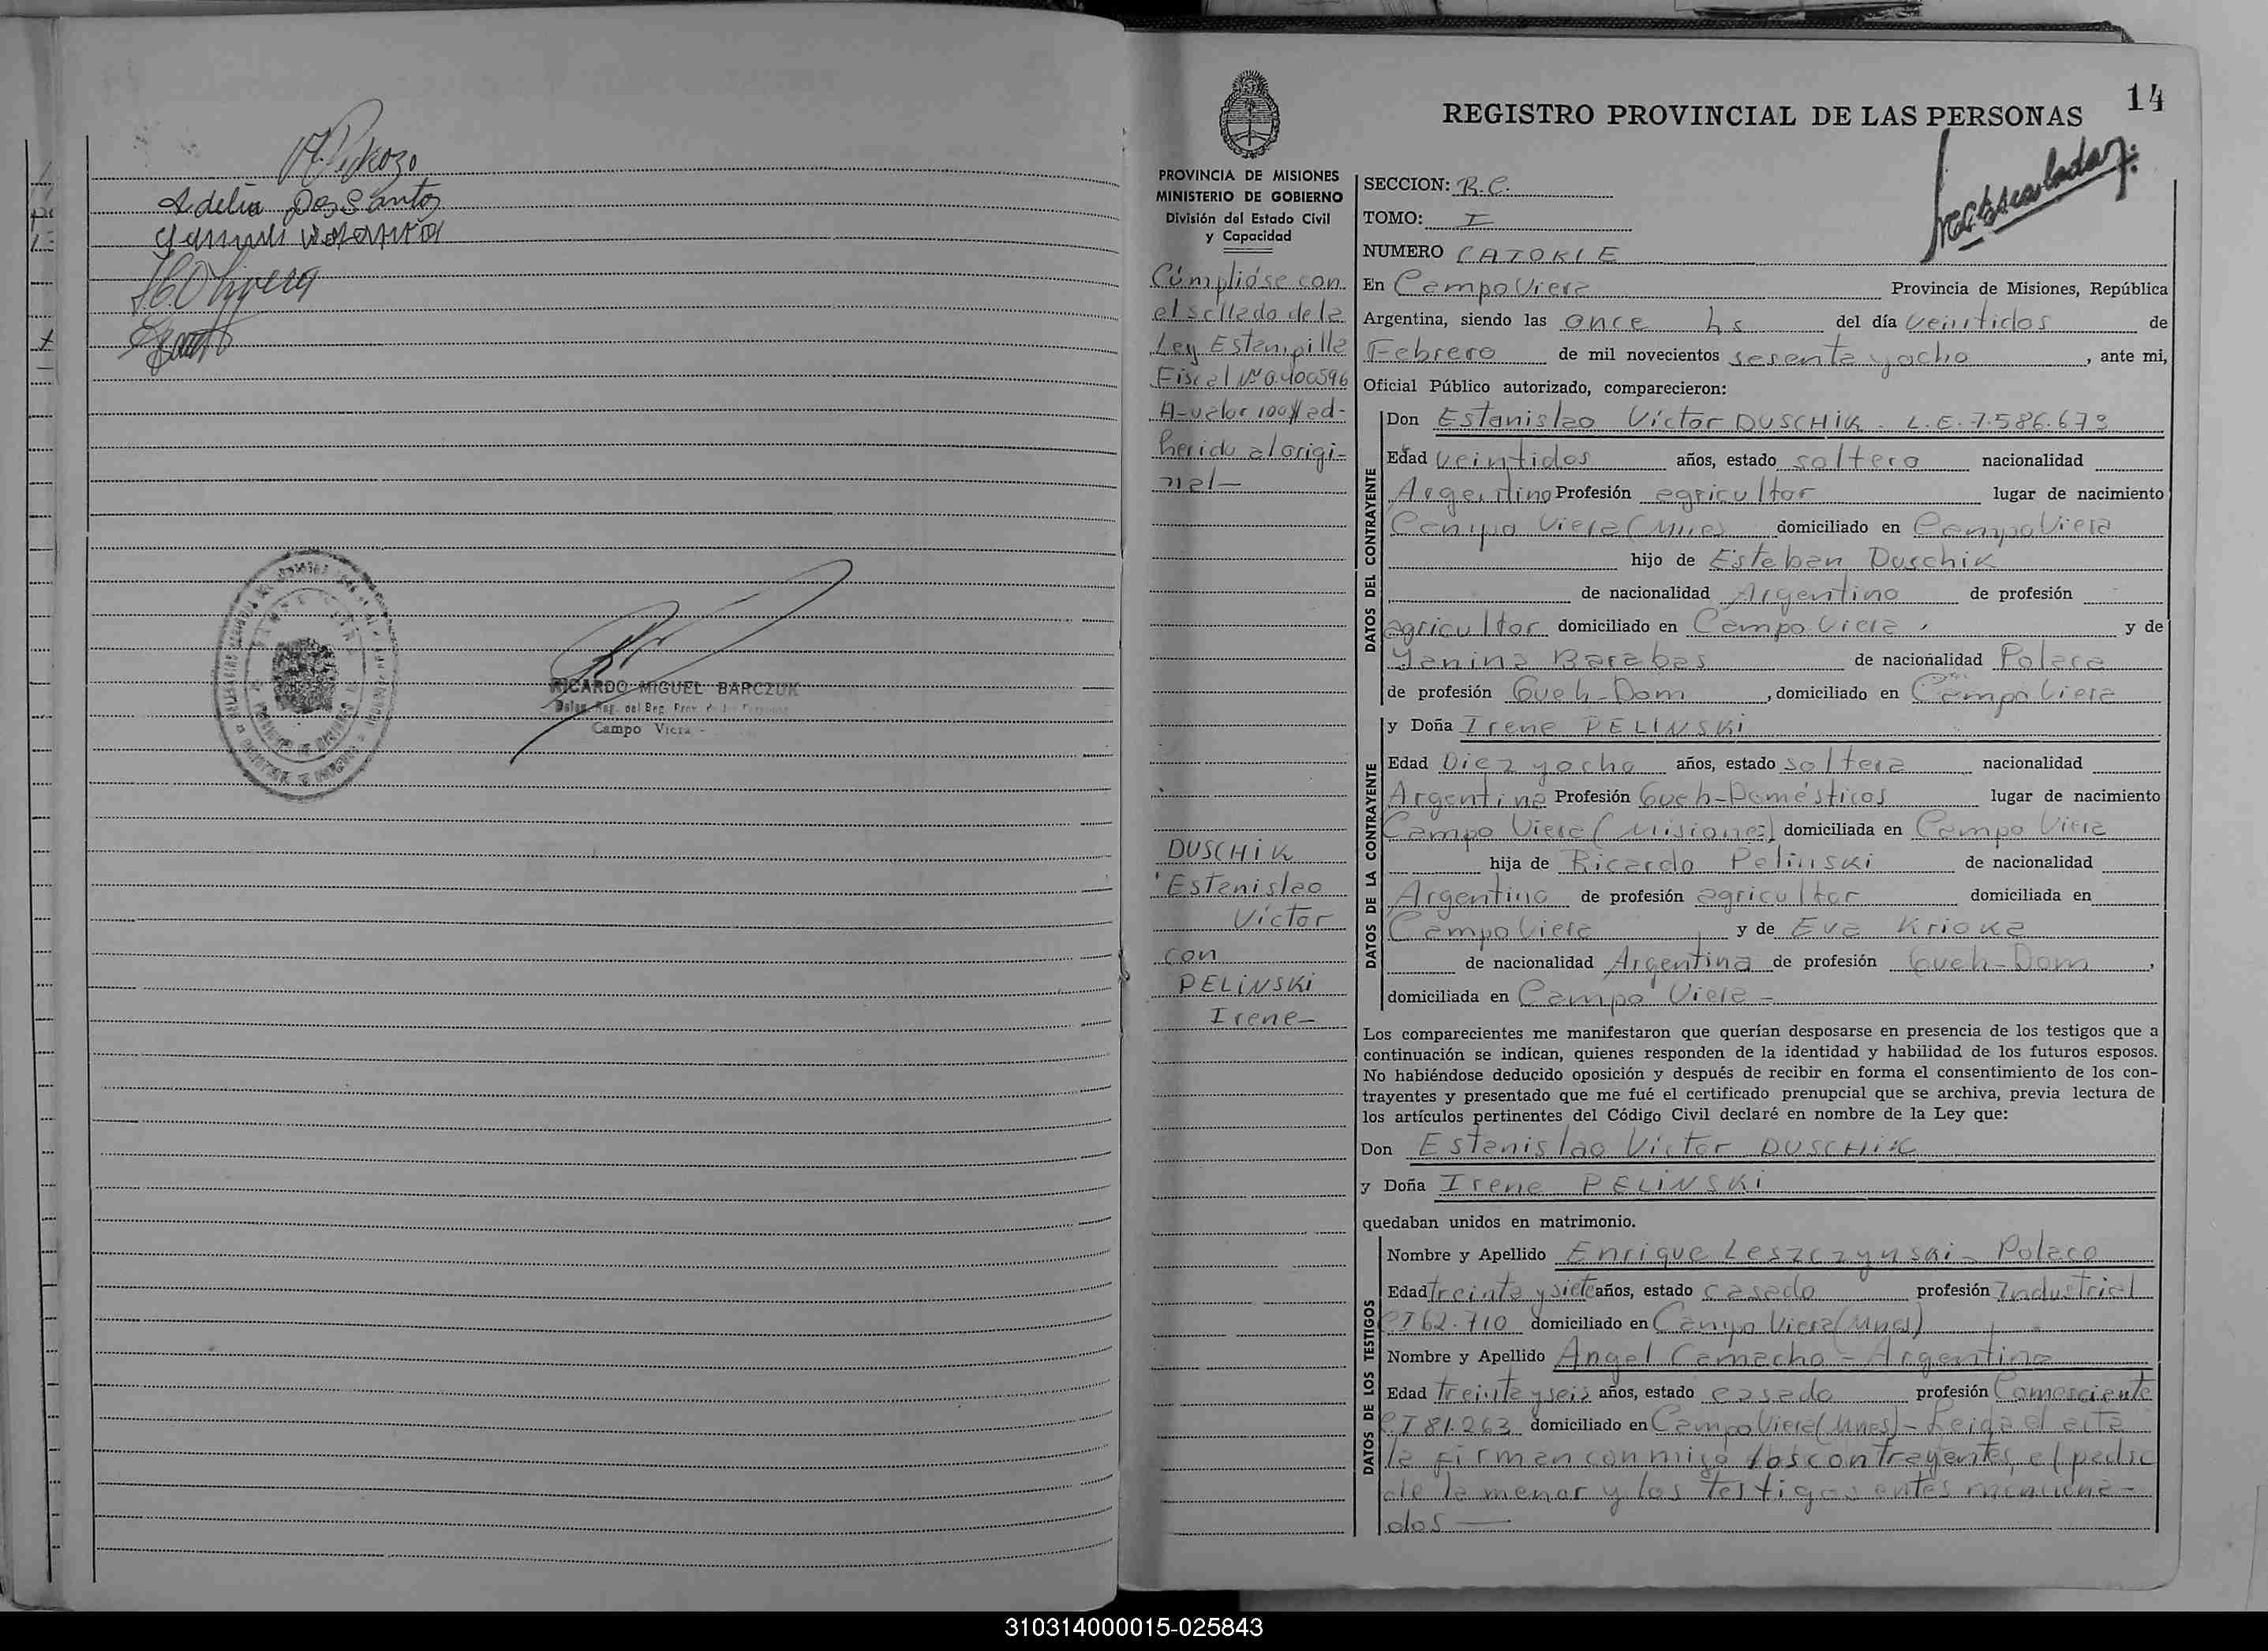 Adelia Dos Santos
RICARDO MIGUEL BARCZUK
Campo Viera
14
REGISTRO PROVINCIAL DE LAS PERSONAS
PROVINCIA DE MISIONES
MINISTERIO DE GOBIERNO
División del Estado Civil
y Capacidad
Cúmplióse con
el sellado de la
Ley Estampilla
Fiscal Nº 0.400596
A-valor 100$ ad-
herido al origi-
nal—
DUSCHiK
Estanislao
Víctor
con
PELiNSKi
Irene—
SECCION: R.C.
TOMO: I
NUMERO CATORCE
En Campo Viera Provincia de Misiones, República
Argentina, siendo las once hs del día veintidos de
Febrero de mil novecientos sesenta y ocho, ante mi,
Oficial Público autorizado, comparecieron:
DATOS DEL CONTRAYENTE
Don Estanislao Víctor DUSCHiK. L.E.7.586.673
Edad veintidos años, estado soltero nacionalidad
Argentino Profesión agricultor lugar de nacimiento
Campo Viera (Mnes) domiciliado en Campo Viera
hijo de Esteban Duschik
de nacionalidad Argentino de profesión
agricultor domiciliado en Campo Viera, y de
Yanina Barabas de nacionalidad Polaca
de profesión Queh-Dom, domiciliado en Campo Viera
DATOS DE LA CONTRAYENTE
y Doña Irene PELINSKi
Edad Diez y ocho años, estado soltera nacionalidad
Argentina Profesión Queh-Domésticos lugar de nacimiento
Campo Viera (Misiones) domiciliada en Campo Viera
hija de Ricardo Pelinski de nacionalidad
Argentino de profesión agricultor domiciliada en
Campo Viera y de Eva Krioka
de nacionalidad Argentina de profesión Queh-Dom,
domiciliada en Campo Viera -
Los comparecientes me manifestaron que querían desposarse en presencia de los testigos que a
continuación se indican, quienes responden de la identidad y habilidad de los futuros esposos.
No habiéndose deducido oposición y después de recibir en forma el consentimiento de los con-
trayentes y presentado que me fué el certificado prenupcial que se archiva, previa lectura de
los artículos pertinentes del Código Civil declaré en nombre de la Ley que:
Don Estanislao Victor DUSCHiK
y Doña Irene PELiNSKi
quedaban unidos en matrimonio.
DATOS DE LOS TESTIGOS
Nombre y Apellido Enrique Leszczynski - Polaco
Edad treinta y siete años, estado casado profesión Industrial
CI 62.710 domiciliado en Campo Viera (Mnes)
Nombre y Apellido Angel Camacho - Argentino
Edad treinta y seis años, estado casado profesión Comerciante
CI 81.263 domiciliado en Campo Viera (Mnes) - Leida el acta
la firman conmigo los contrayentes, el padre
de la menor y los testigos antes menciona-
dos —
310314000015-025843